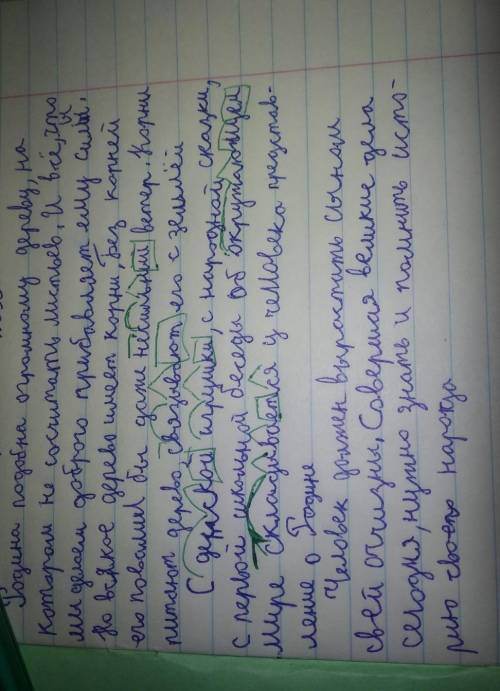 Родина подобна огромному дереву, на
котором не сосчитать листьев. И всё, что
мы делаем доброго прибавляет ему силы.
Но всякое дерево имеет корни, Без корней
его повалил бы даже несильный ветер. Корни
питают дерево, связывают его с землёй
С детской игрушки, с народной сказки,
с первой школьной беседы об окружающем
мире складывается у человека представ-
ление о Родине
Человек должен вырастить сынам
свей отчизны, Совершая великие дела
сегодня, нужно знать и помнить исто-
рию своего народа